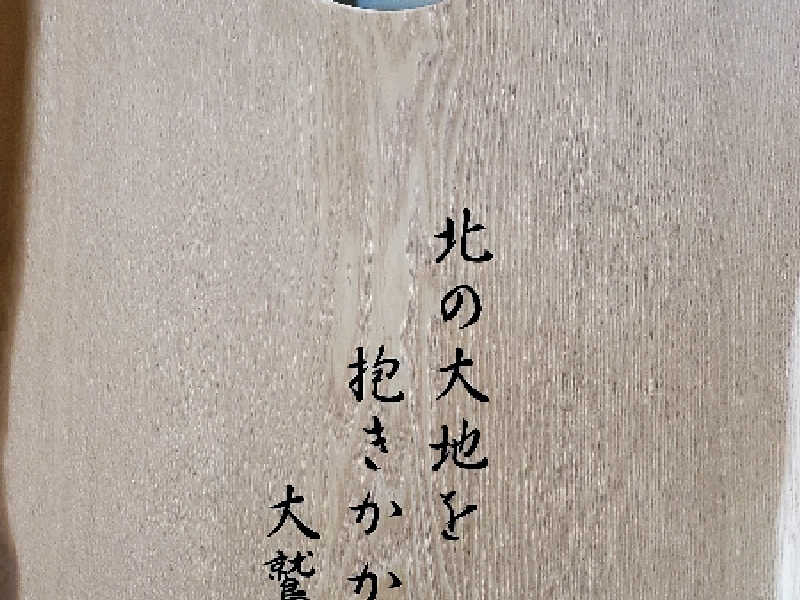 北の大地を
抱きかか
大鷲